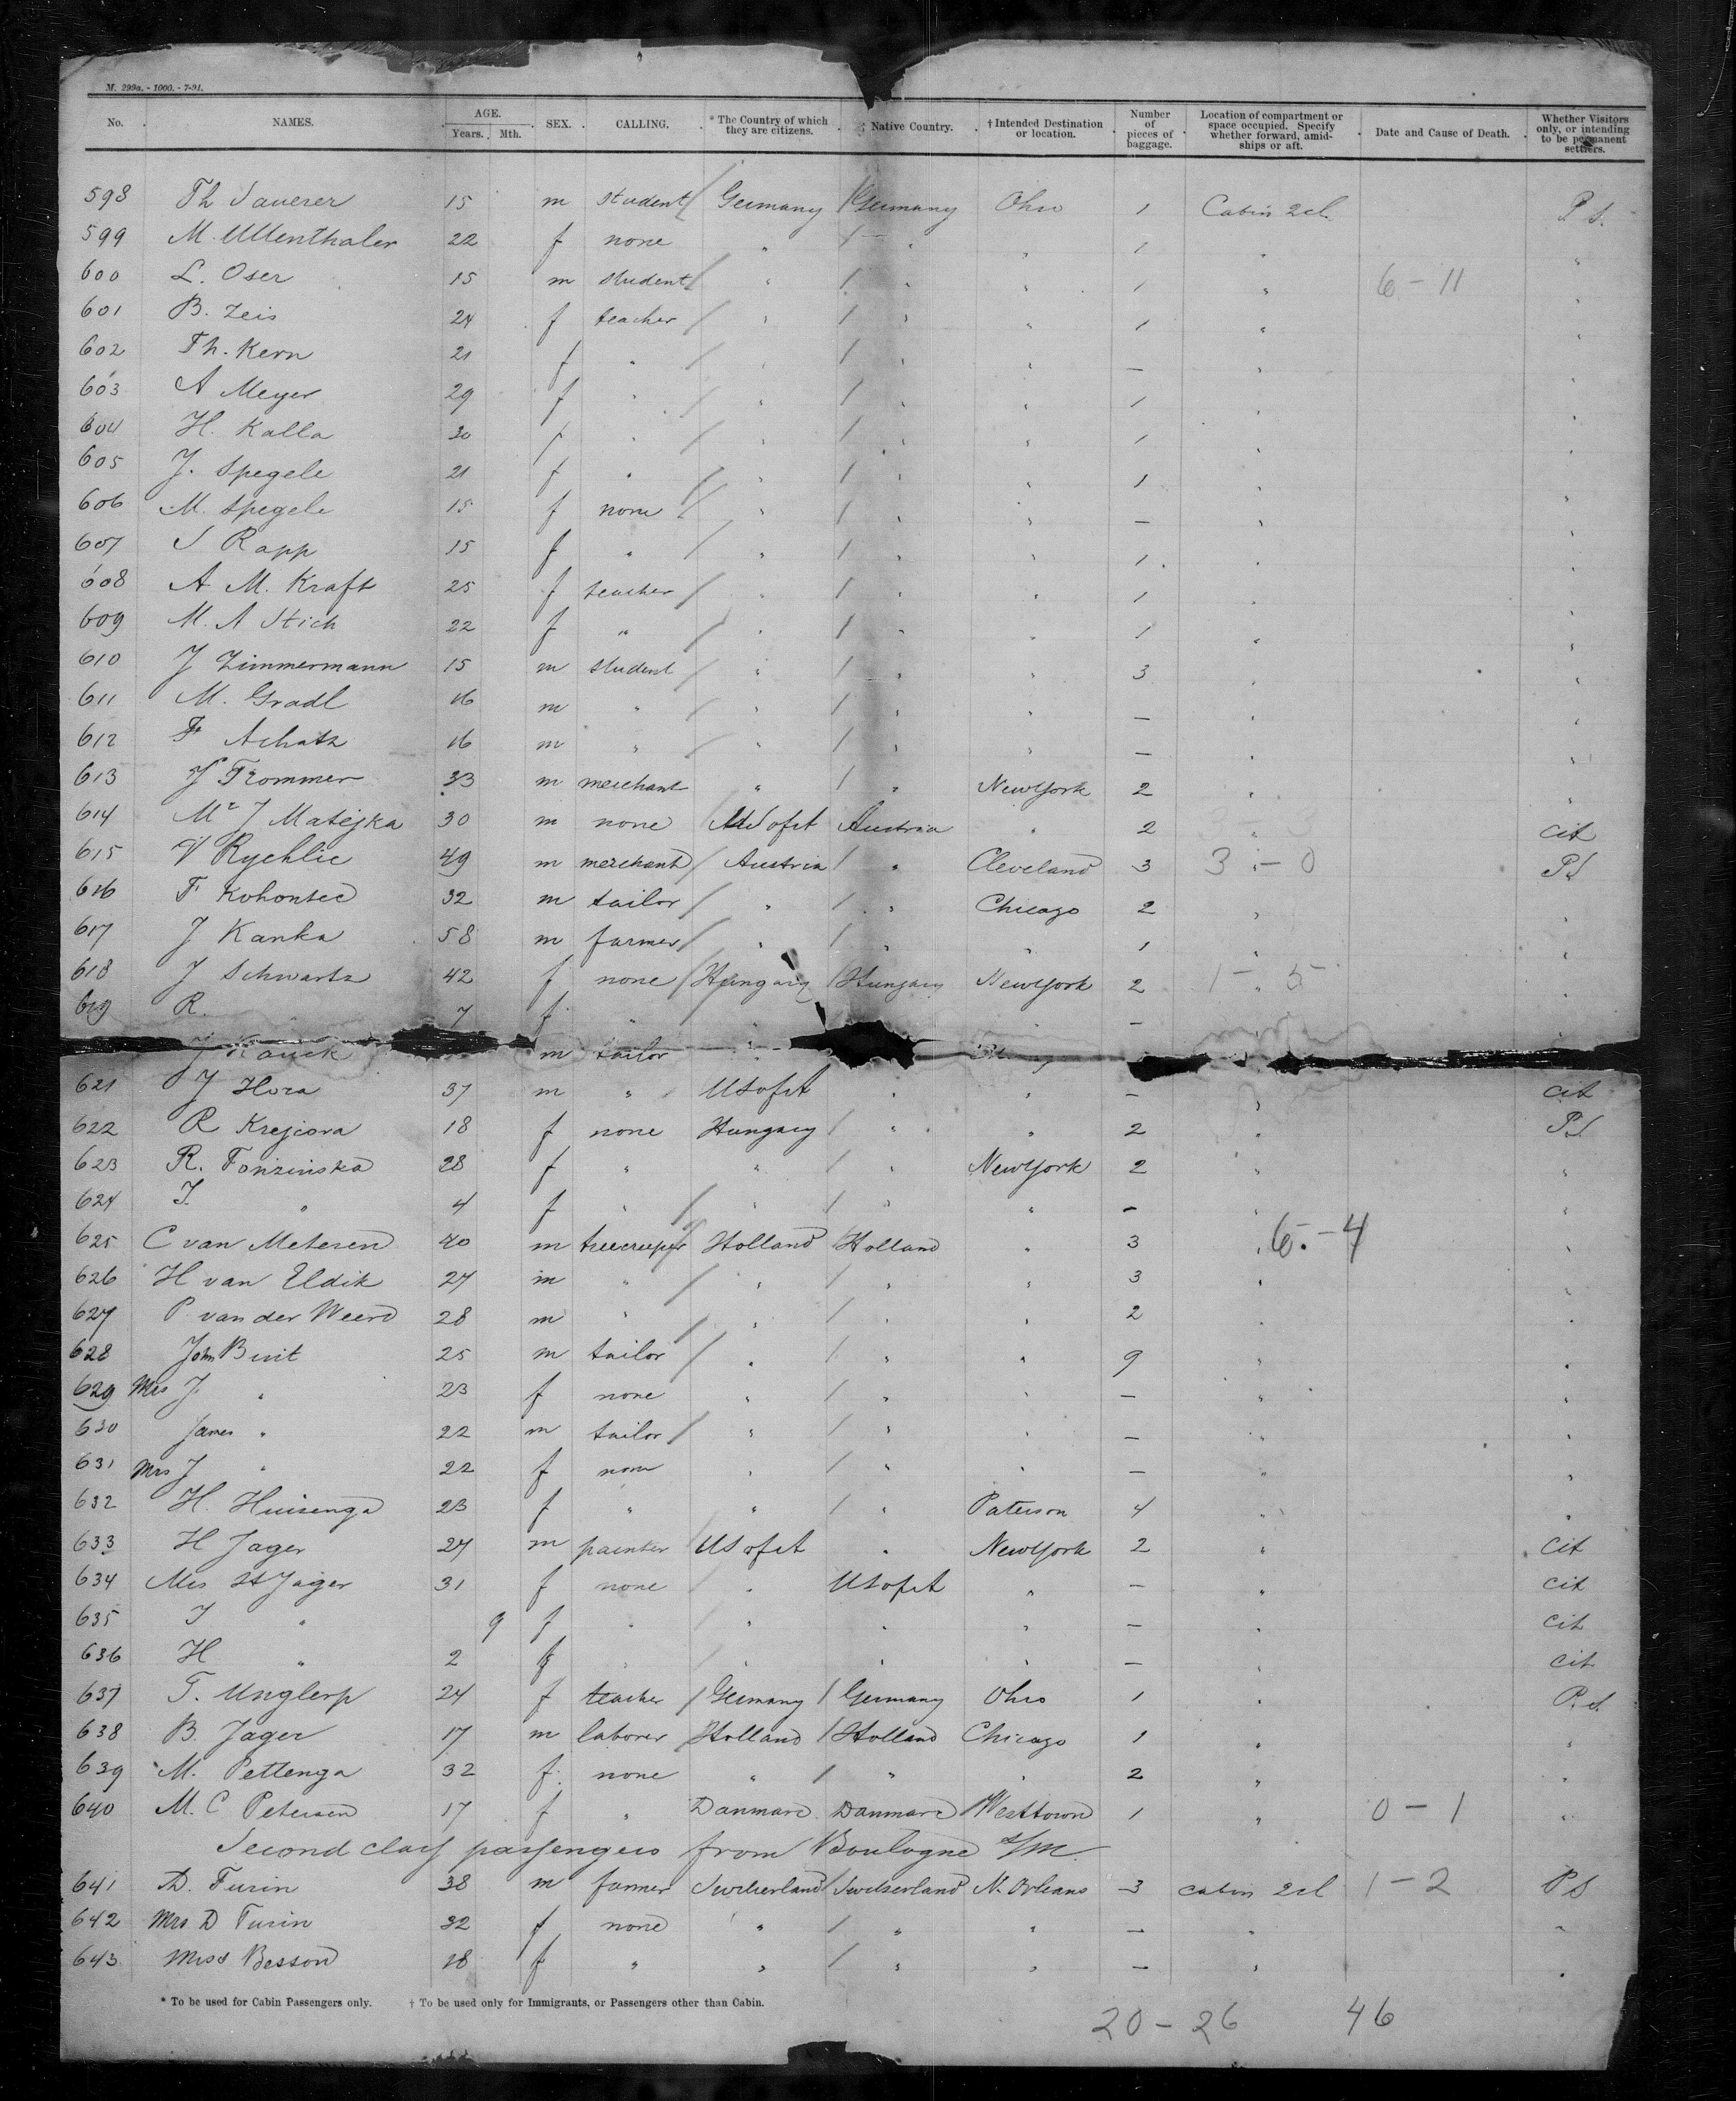 M. 299a. - 1000. - 7-91.
No. NAMES. AGE. Years. Mth. SEX. CALLING. * The Country of which they are citizens. † Native Country. † Intended Destination or location. Number of pieces of baggage. Location of compartment or space occupied. Specify whether forward, amid-ships or aft. Date and Cause of Death. Whether Visitors only, or intending to be permanent settlers.
598 Th Sauerer 15 m student / Germany / Germany Ohio 1 Cabin 2cl. P S.
599 M. Ullenthaler 22 f none " / " " 1 " "
600 L. Oser 15 m student / " / " " 1 " 6 - 11 "
601 B. Zeis 24 f teacher / " / " " 1 " "
602 Th. Kern 21 f " / " / " " — " "
603 A Meyer 29 f " / " / " " 1 " "
604 H. Kalla 30 f " / " / " " 1 " "
605 J. Spegele 21 f " / " / " " 1 " "
606 M. Spegele 15 f none / " / " " — " "
607 S Rapp 15 f " / " / " " 1 " "
608 A M. Kraft 25 f teacher / " / " " 1 " "
609 M. A Stich 22 f " / " / " " 1 " "
610 J Zimmermann 15 m student / " / " " 3 " "
611 M. Gradl 16 m " / " / " " — " "
612 F Achatz 16 m " / " / " " — " "
613 J Trommer 33 m merchant " / " NewYork 2 " "
614 Mr J Matejka 30 m none USofA Austria " 2 " cit
615 V Rychlic 49 m merchant / Austria / " Cleveland 3 3 - 0 PS
616 F Kohontec 32 m tailor / " / " Chicago 2 " "
617 J Kanka 58 m farmer / " / " " 1 " "
618 J Schwartz 42 f none / Hungary / Hungary NewYork 2 1 - 5 "
619 R. " 7 f " " " — "
J Kauck m tailor "
621 J Hora 37 m " USofA " " — " cit
622 R Krejiova 18 f none Hungary / " " 2 " PS
623 R. 28 f " " / " NewYork 2 " "
624 J. " 4 f " / " / " " — " "
625 C van Meteren 40 m Holland / Holland " 3 " 6 - 4 "
626 H van Eldik 27 m " / " / " " 3 " "
627 P van der Weerd 28 m " / " / " " 2 " "
628 John Buit 25 m tailor / " / " " 9 " "
629 Mrs J. " 23 f none " / " " — " "
630 James " 22 m tailor / " / " " — " "
631 Mrs J " 22 f none " / " " — " "
632 H. Huisenga 23 f " " / " Paterson 4 " "
633 H Jager 27 m painter / USofA " NewYork 2 " cit
634 Mrs H Jager 31 f none / " USofA " — " cit
635 J " 9 f " / " " " — " cit
636 H " 2 f " / " " " — " cit
637 T. Unglerp 24 f teacher / Germany / Germany Ohio 1 " P.S.
638 B. Jager 17 m laborer Holland / Holland Chicago 1 " "
639 M. Pettenga 32 f. none " / " " 2 " "
640 M. C Petersen 17 f " Danmarc Danmarc Westtown 1 " 0 - 1 "
Second class passengers from Boulogne s/M.
641 D. Turin 38 m farmer Switserland / Switserland N. Orleans 3 cabin 2cl 1 - 2 PS
642 Mrs D Turin 32 f none " / " " — " "
643 Miss Besson 18 f " " / " " — " "
* To be used for Cabin Passengers only. † To be used only for Immigrants, or Passengers other than Cabin.
20 - 26 46